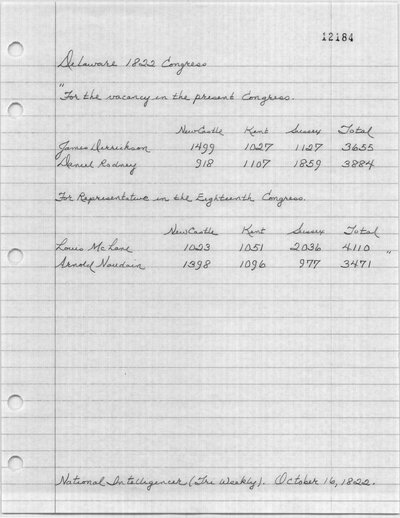 12184
Delaware 1822 Congress
"For the vacancy in the present Congress.
New Castle Kent Sussex Total
James Derrickson 1499 1027 1127 3655
Daniel Rodney 918 1107 1859 3884
For Representative in the Eighteenth Congress.
New Castle Kent Sussex Total
Louis McLane 1023 1051 2036 4110
Arnold Naudain 1398 1096 977 3471 "
National Intelligencer (Tri Weekly). October 16, 1822.